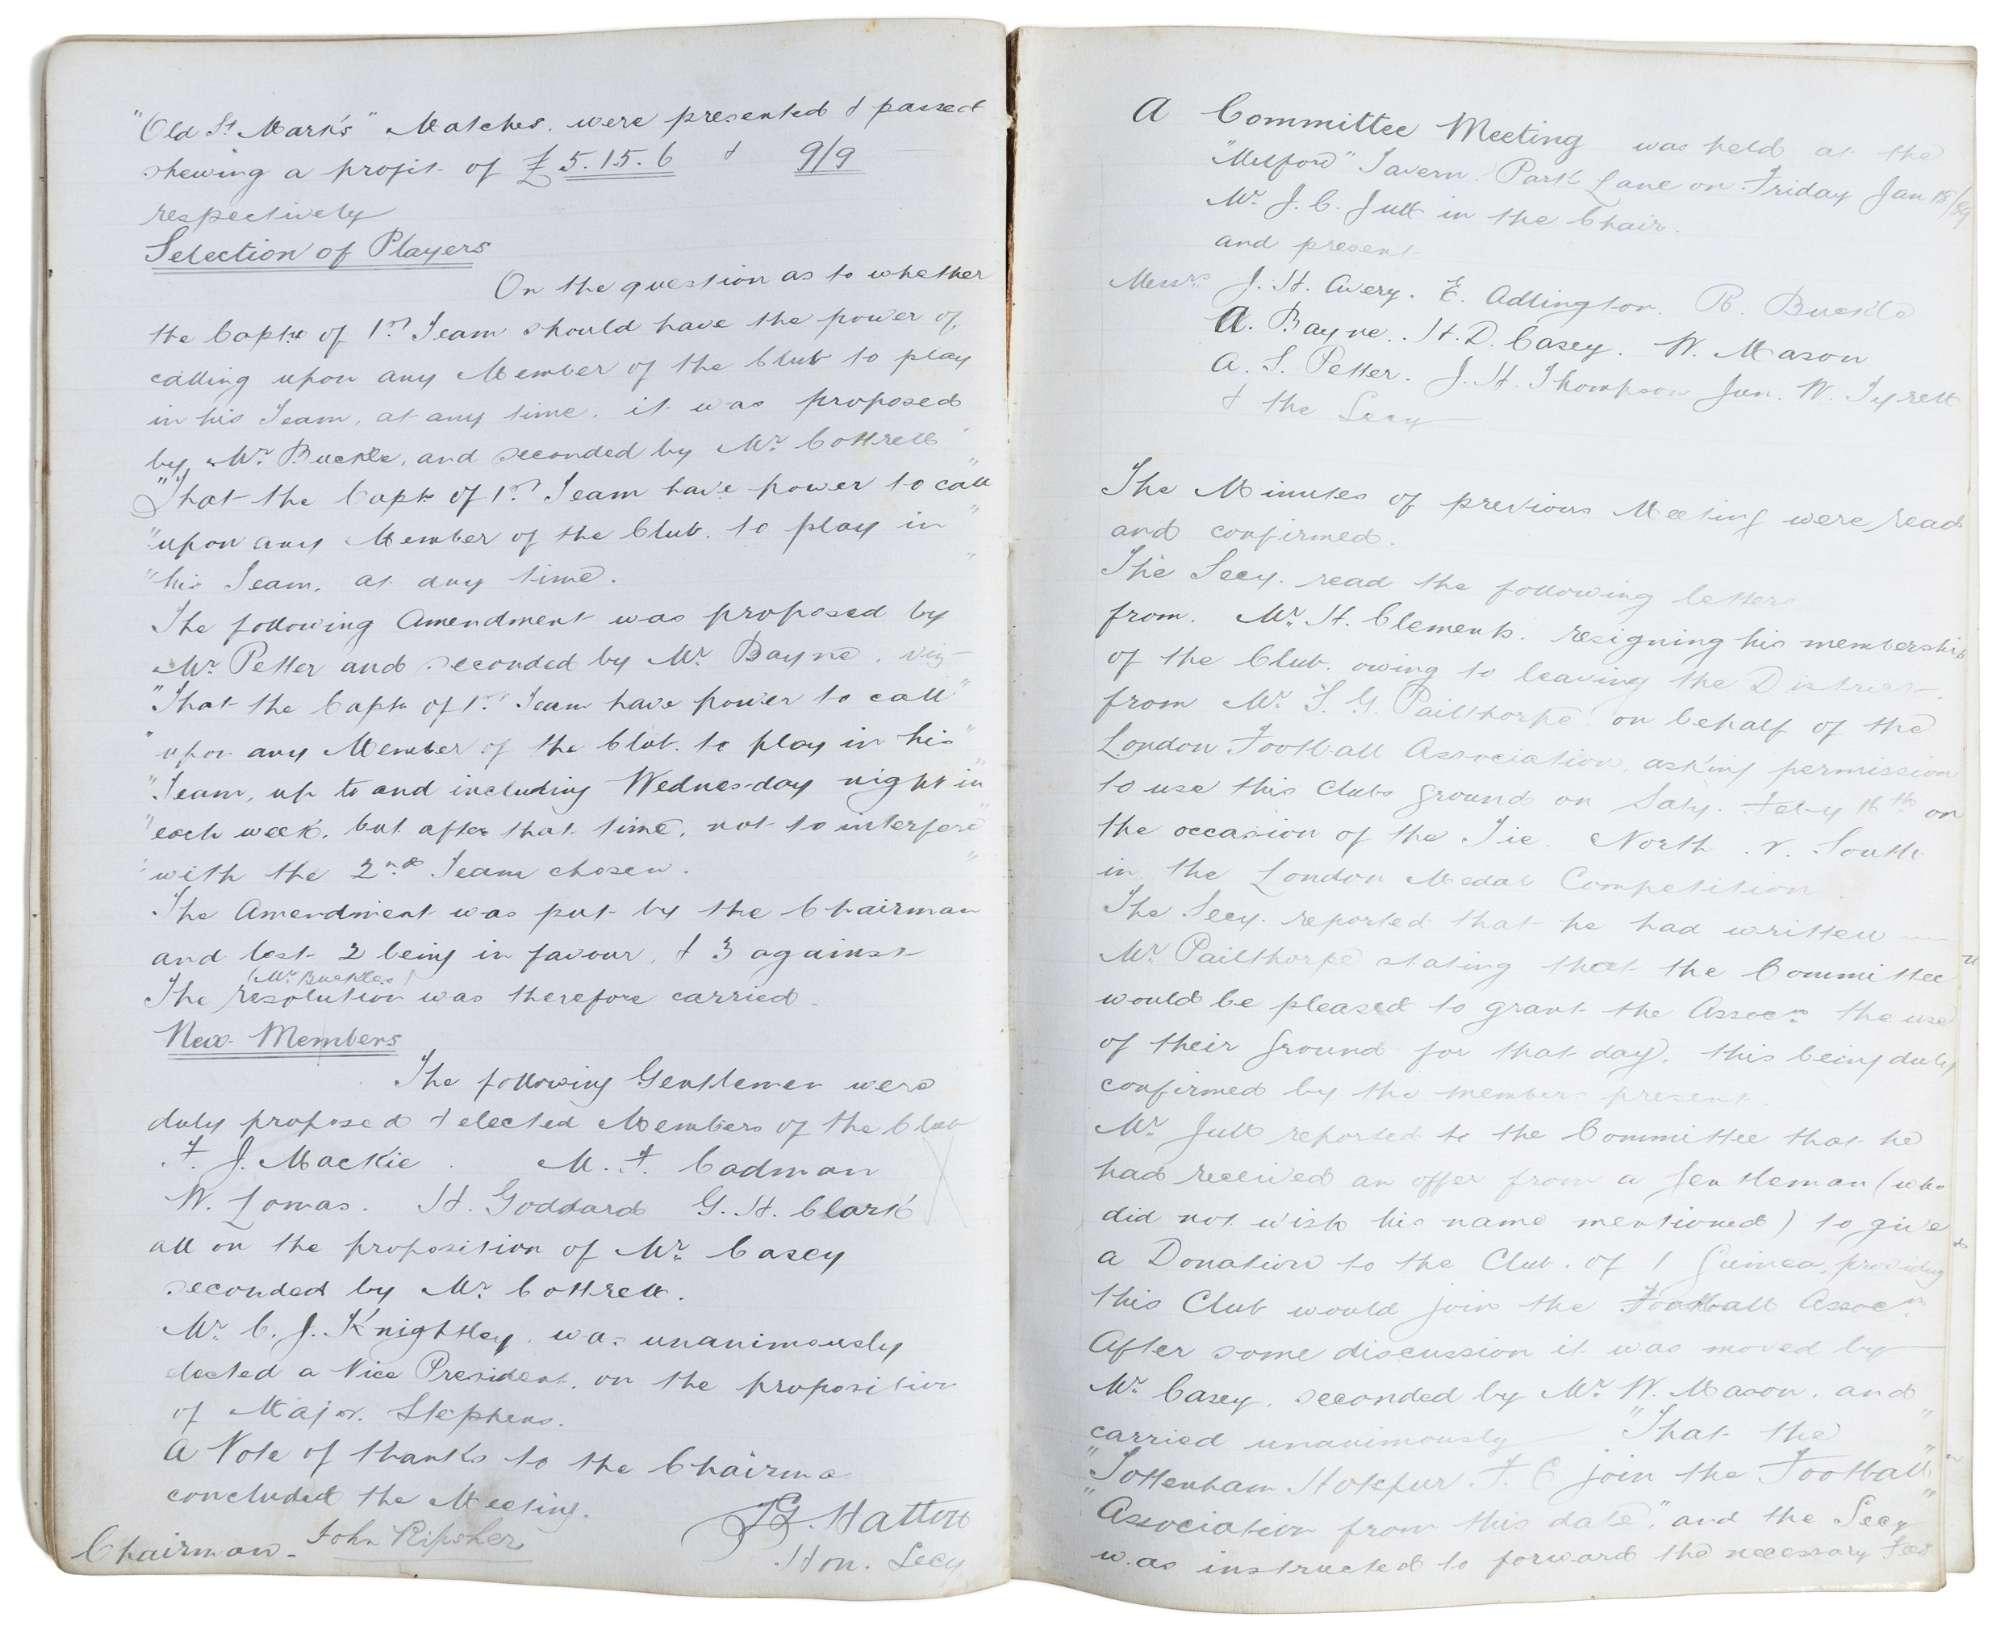 "Old St Mark's" Matches. were presented & passed
shewing a profit of £5.15.6 & 9/9
respectively
Selection of Players
On the question as to whether
the Captn of 1st Team should have the power of
calling upon any Member of the Club to play
in his Team, at any time. it was proposed
by Mr. Buckle, and seconded by Mr. Cottrell
"That the Captn of 1st Team have power to call"
"upon any Member of the Club. to play in"
"his Team. at any time."
The following Amendment was proposed by
Mr. Petter and seconded by Mr. Bayne. viz
"That the Captn of 1st Team have power to call"
"upon any Member of the Club. to play in his"
"Team, up to and including Wednesday night in"
"each week, but after that time, not to interfere"
"with the 2nd Team chosen."
The Amendment was put by the Chairman
and lost 2 being in favour, & 3 against
(Mr. Buckles)
The resolution was therefore carried.
New Members
The following Gentlemen were
duly proposed & elected Members of the Club
F. J. Mackie. M. F. Cadman
W. Lomas. H. Goddard G. H. Clark
all on the proposition of Mr. Casey
seconded by Mr. Cottrell.
Mr. C. J. Knightley. was unanimously
elected a Vice President. on the proposition
of Major. Stephens.
A Vote of thanks to the Chairma
concluded the Meeting.
Chairman - John Ripsher
Hatton
Hon. Secy
A Committee Meeting was held at the
"Milford" Tavern. Park Lane on Friday Jan 18/89
Mr. J. C. Jull in the Chair.
and present
Messrs J. H. Avery. E. Adlington. R. Buckle
A. Bayne. H. D. Casey. W. Mason
A. S. Petter. J. H. Thompson Jun. W. Tyrell
& the Secy
The Minutes of previous Meeting were read
and confirmed.
The Secy. read the following letters
from. Mr. H. Clements. resigning his membership
of the Club. owing to leaving the District.
from Mr. T. G. Pailthorpe on behalf of the
London Football Association, asking permission
to use this Clubs ground on Saty. Feby 16th on
the occasion of the Tie. North. v. South
in the London Medal Competition
The Secy. reported that he had written
Mr. Pailthorpe stating that the Committee
would be pleased to grant the Assocn the use
of their ground for that day, this being duly
confirmed by the members present.
Mr. Jull reported to the Committee that he
had received an offer from a Gentleman (who
did not wish his name mentioned) to give
a Donation to the Club. of 1 Guinea, providing
this Club would join the Football Assocn.
After some discussion it was moved by
Mr. Casey, seconded by Mr. W. Mason, and
carried unanimously "That the"
"Tottenham Hotspur. F. C join the Football"
"Association from this date", and the Secy
was instructed to forward the necessary Fees